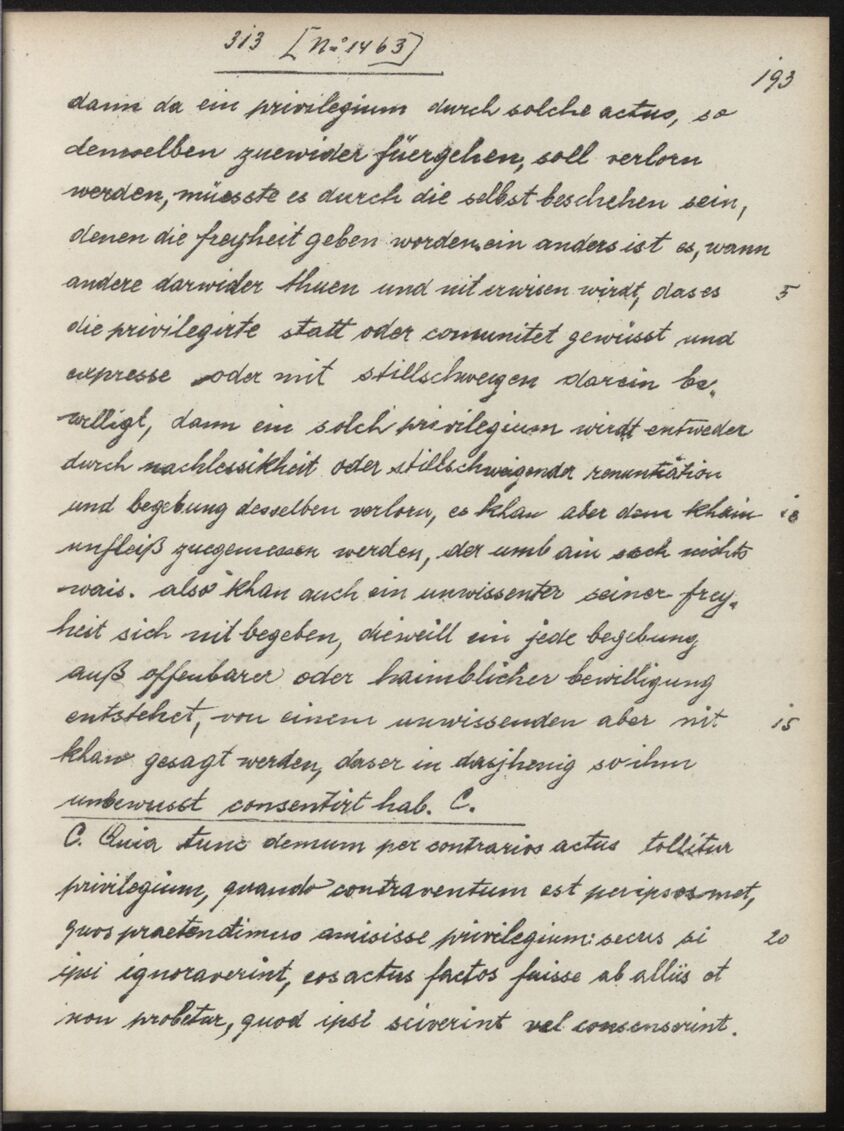 313 [No 1463]
193
dann da ein privilegium durch solche actus, so
demselben zuewider füergehen, soll verlorn
werden, müesste es durch die selbst beschehen sein,
denen die freyheit geben worden. ein anders ist es, wann
andere darwider thuen und nit erwisen wirdt, das es 5
die privilegirte statt oder comunitet gewüsst und
expresse oder mit stillschweigen darein be-
willigt, dann ein solch privilegium wirdt entweder
durch nachlessikheit oder stillschweigender renuntiation
und begebung desselben verlorn, es khan aber dem khain 10
unfleiß zuegemessen werden, der umb ain sach nichts
wais. also khan auch ein unwissenter seiner frey-
heit sich nit begeben, dieweill ein jede begebung
auß offenbarer oder haimblicher bewilligung
entstehet, von einem unwissenden aber nit 15
khan gesagt werden, das er in dasjhenig so ihm
unbewusst consentirt hab. C.
C. Quia tunc demum per contrarios actus tollitur
privilegium, quando contraventum est per ipsosmet,
quos praetendimus amisisse privilegium: secus si 20
ipsi ignoraverint, eos actus factos fuisse ab alliis et
non probetur, quod ipsi sciverint vel consenserint.